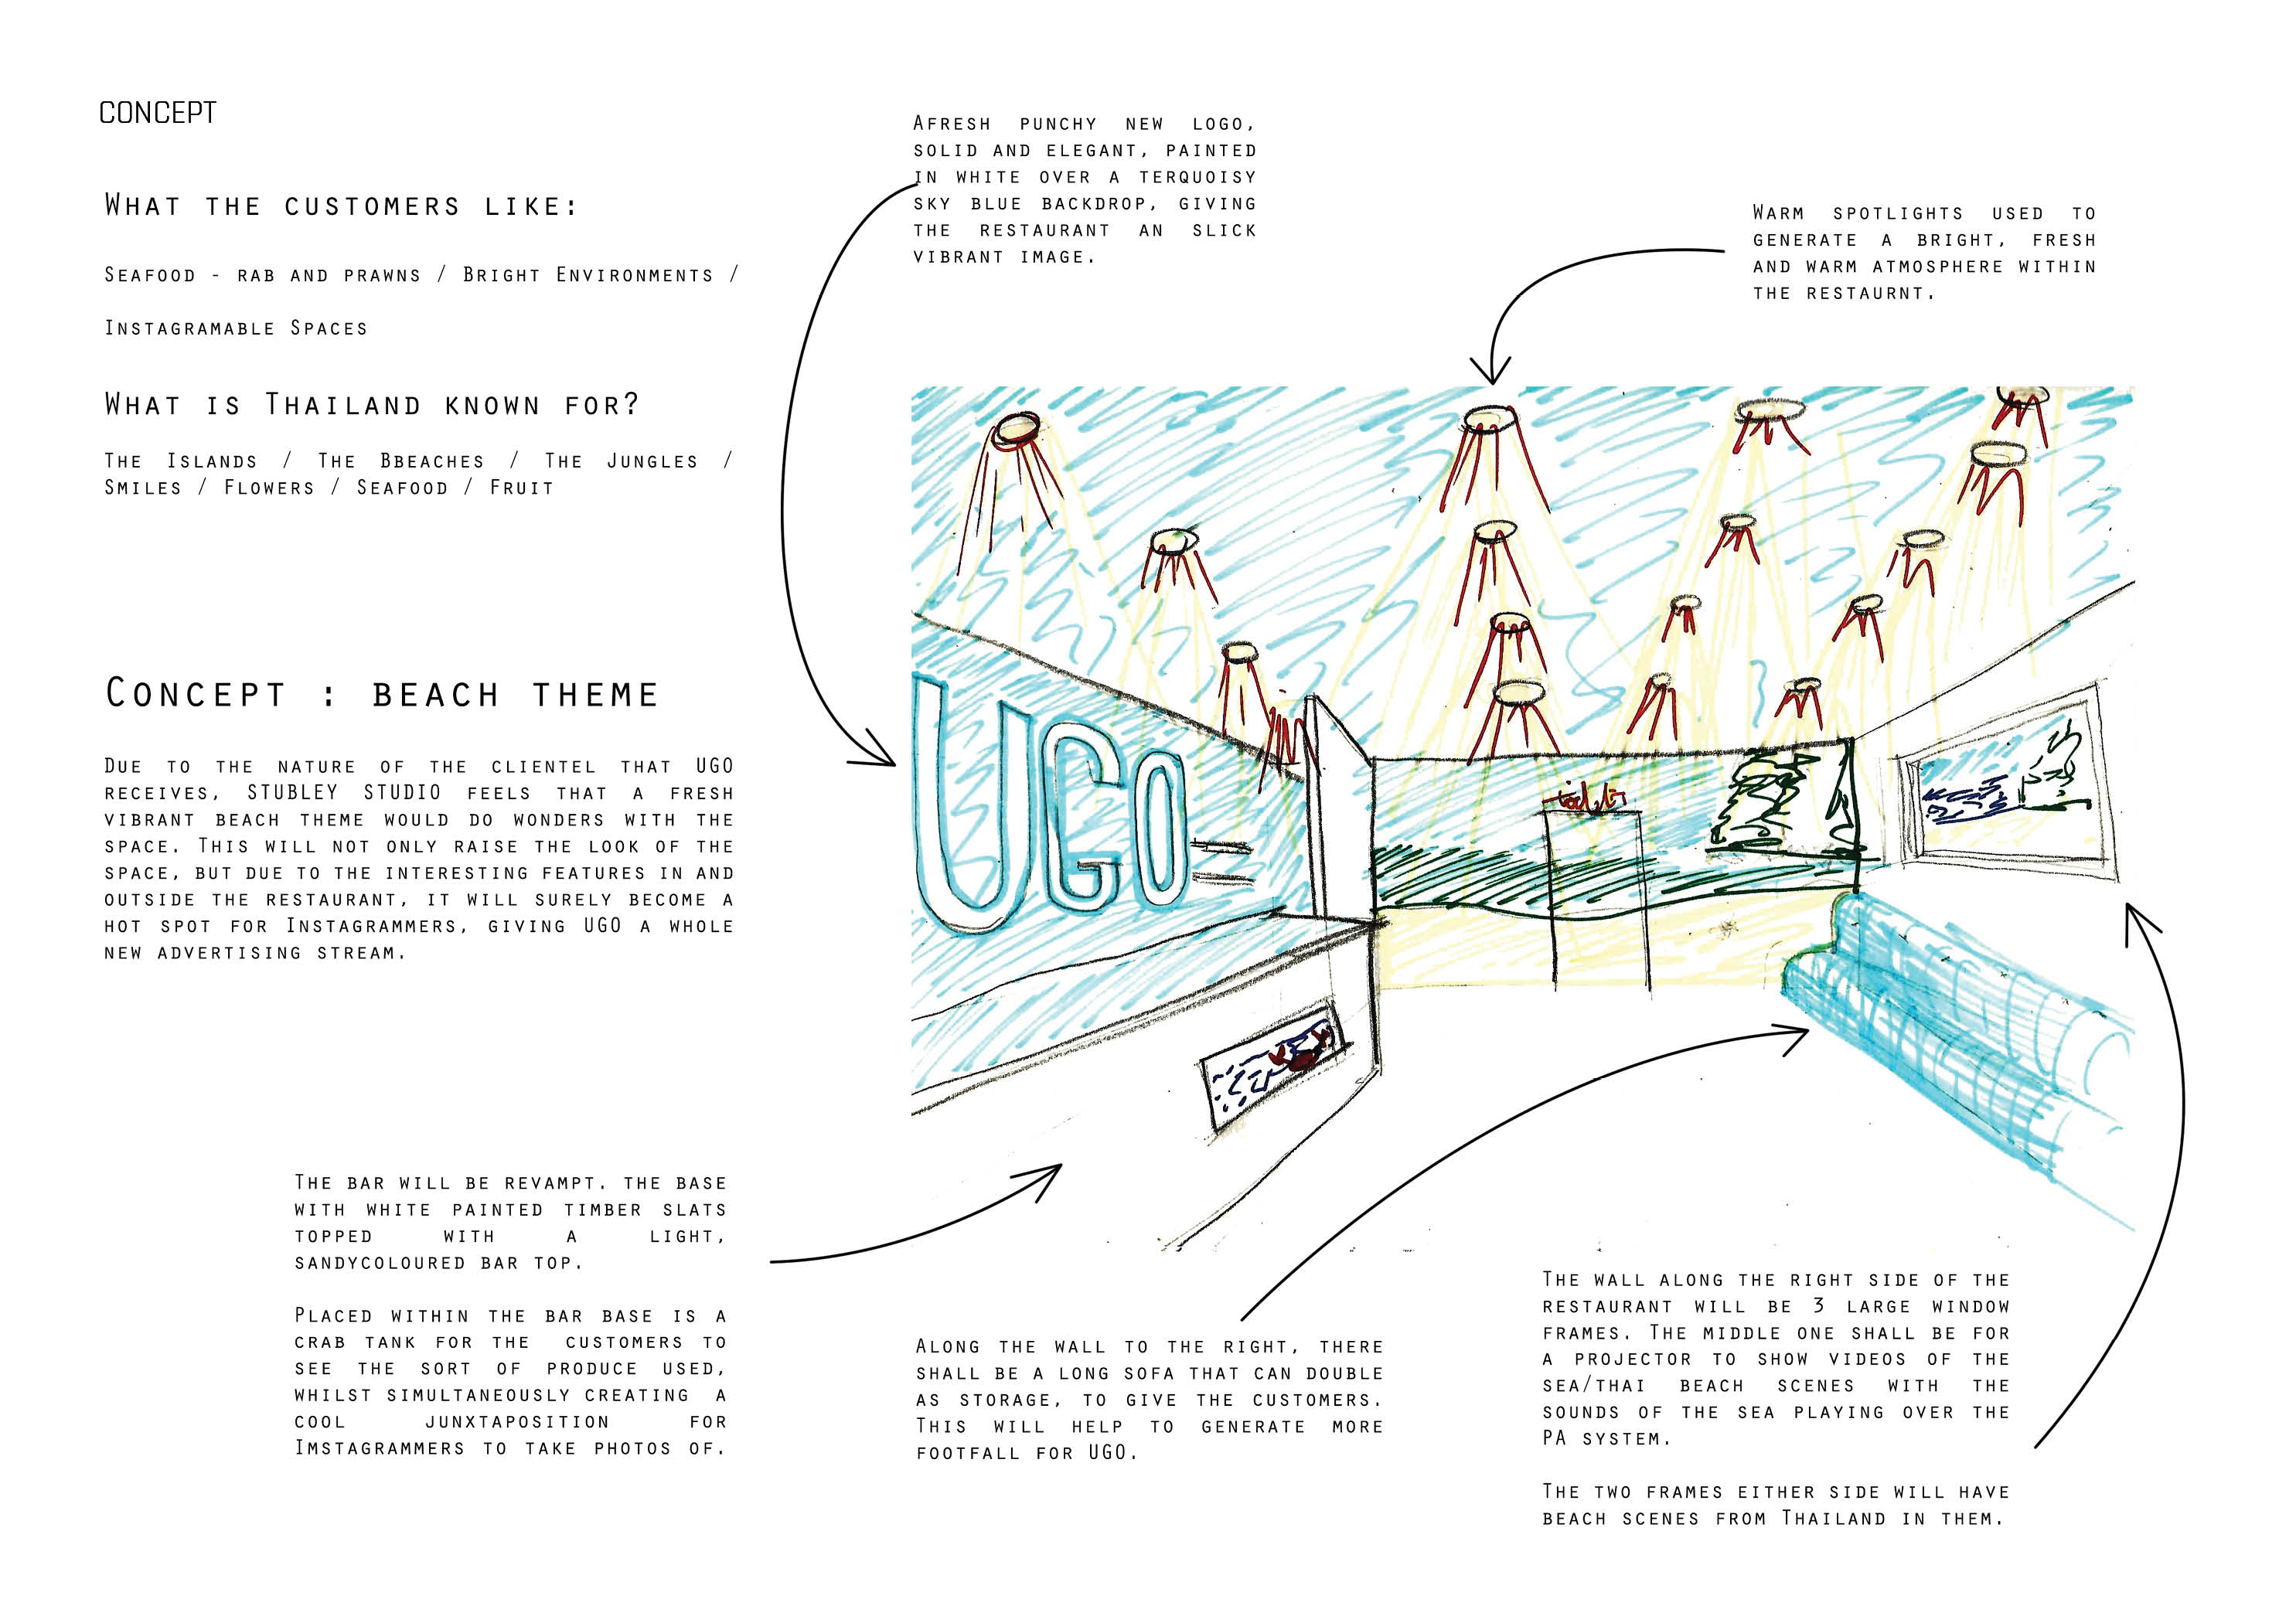 CONCEPT
What the customers like:
Seafood - rab and prawns / Bright Environments /
Instagramable Spaces
What is Thailand known for?
The Islands / The Bbeaches / The Jungles /
Smiles / Flowers / Seafood / Fruit
Concept : beach theme
Due to the nature of the clientel that UGO
receives, STUBLEY STUDIO feels that a fresh
vibrant beach theme would do wonders with the
space. This will not only raise the look of the
space, but due to the interesting features in and
outside the restaurant, it will surely become a
hot spot for Instagrammers, giving UGO a whole
new advertising stream.
The bar will be revampt. the base
with white painted timber slats
topped with a light,
sandycoloured bar top.
Placed within the bar base is a
crab tank for the customers to
see the sort of produce used,
whilst simultaneously creating a
cool junxtaposition for
Imstagrammers to take photos of.
Afresh punchy new logo,
solid and elegant, painted
in white over a terquoisy
sky blue backdrop, giving
the restaurant an slick
vibrant image.
Warm spotlights used to
generate a bright, fresh
and warm atmosphere within
the restaurnt.
UGO
toilet
Along the wall to the right, there
shall be a long sofa that can double
as storage, to give the customers.
This will help to generate more
footfall for UGO.
The wall along the right side of the
restaurant will be 3 large window
frames. The middle one shall be for
a projector to show videos of the
sea/thai beach scenes with the
sounds of the sea playing over the
PA system.
The two frames either side will have
beach scenes from Thailand in them.